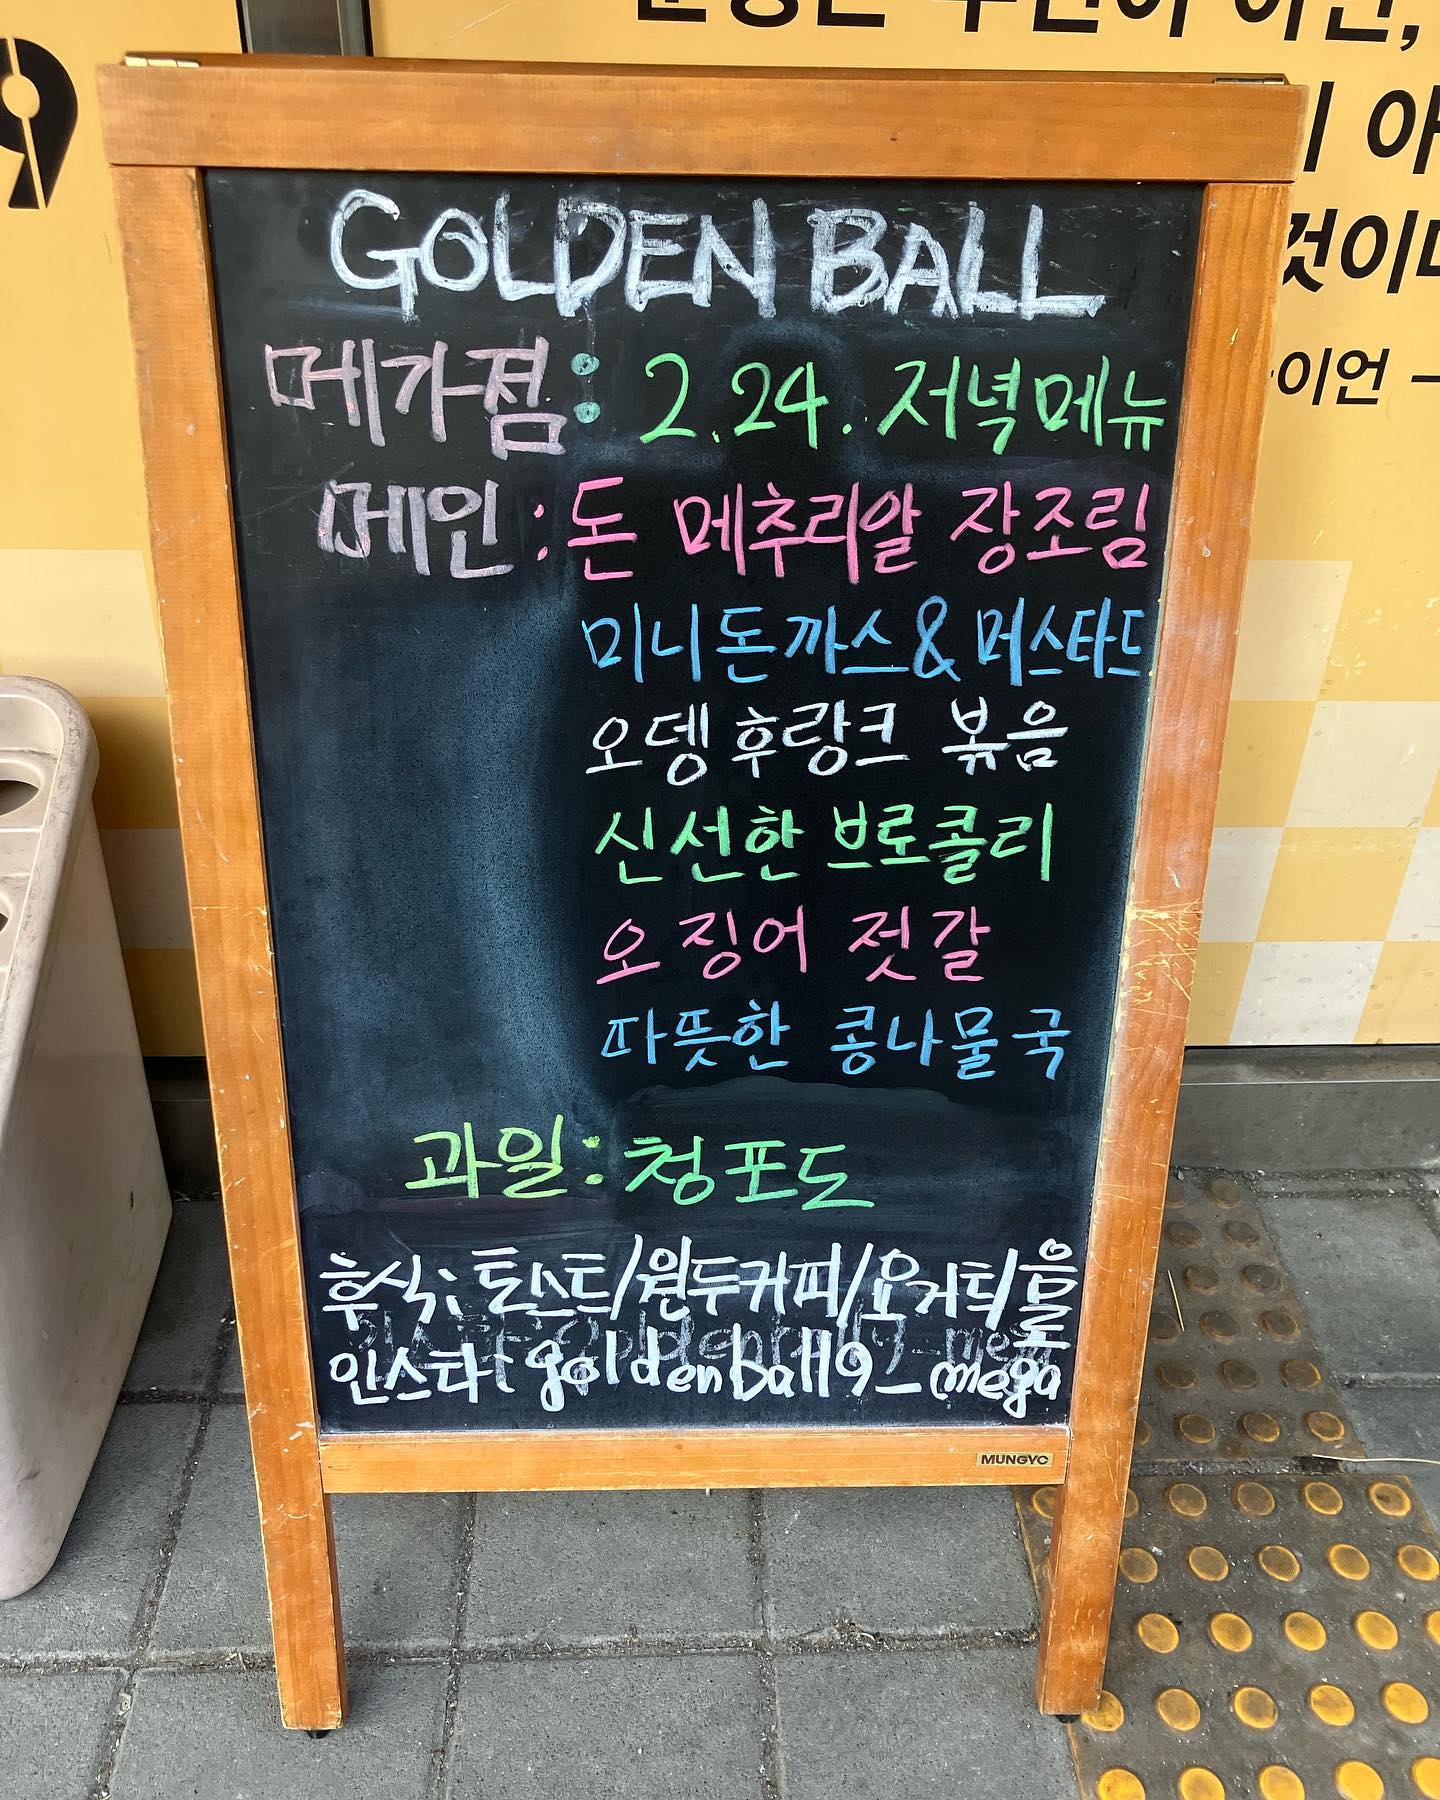 GOLDEN BALL
메가점: 2.24. 저녁메뉴
메인: 돈 메추리알 장조림
미니돈까스 & 머스타드
오뎅후랑크 볶음
신선한 브로콜리
오징어 젓갈
따뜻한 콩나물국
과일: 청포도
후식: 토스트/원두커피/요거트/물
인스타: goldenball9_mega
MUNGYO
9
것이다
이언